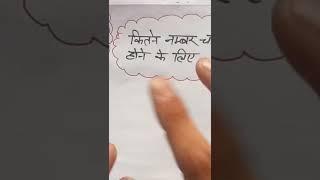 कितने नम्बर च
होने के लिए